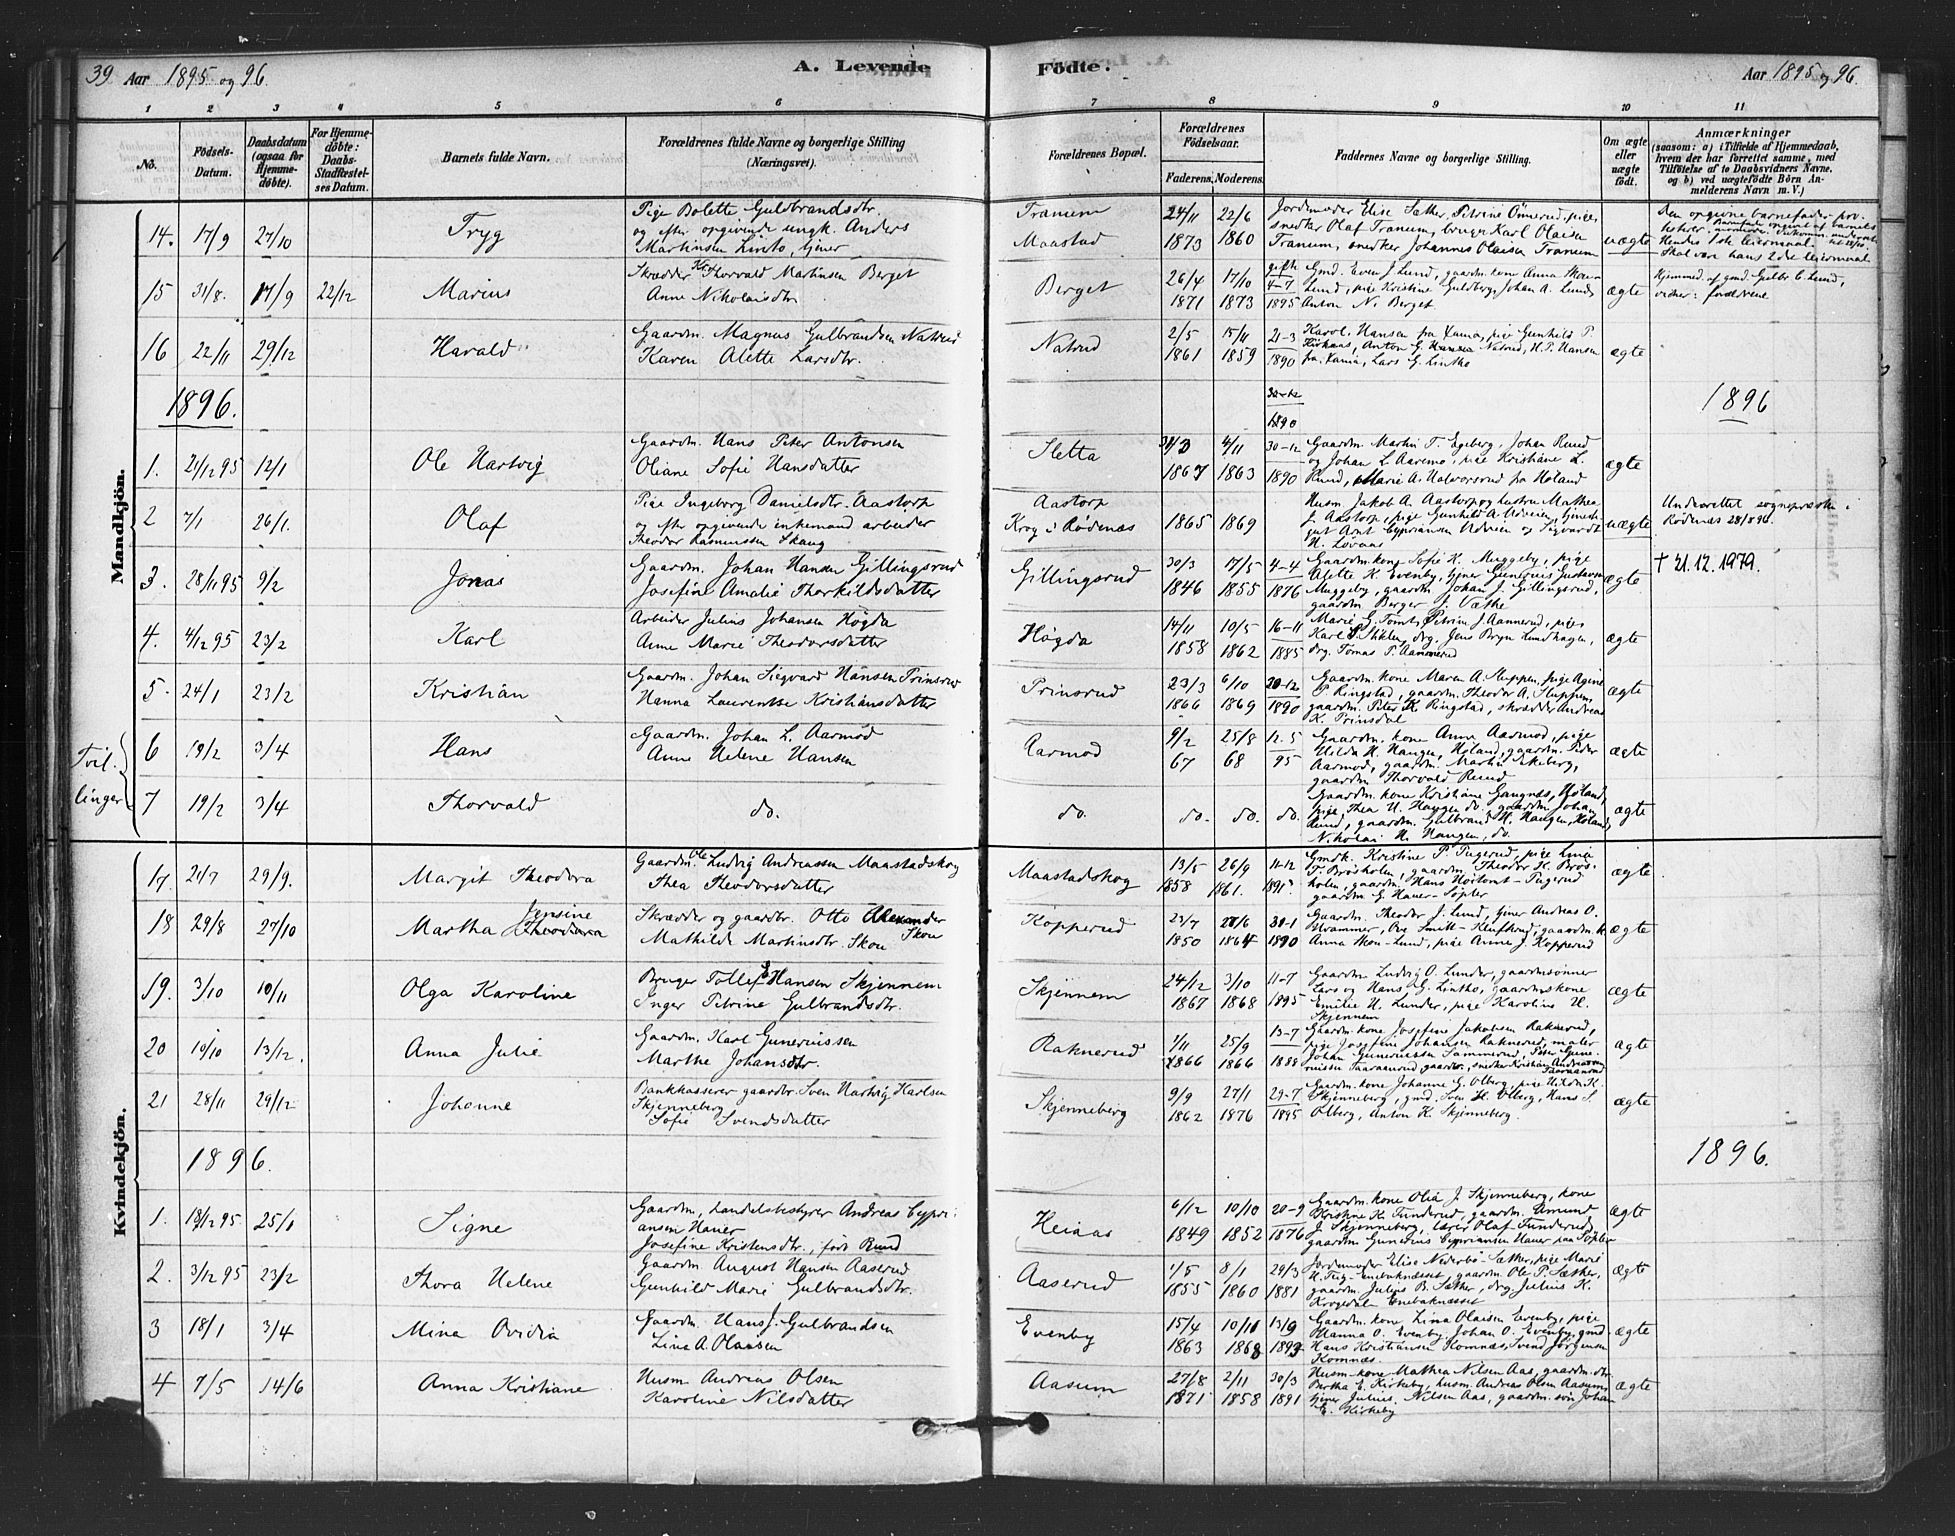 39. Aar 1895 og 96.
A. Levende
Födte.
Aar 1895 og 96.
1 2 3 4 5 6 7 8 9 10 11
No.
Födsels-Datum.
Daabsdatum (ogsaa for Hjemme-döbte).
For Hjemme-döbte: Daabs-Stadfæstel-ses Datum.
Barnets fulde Navn.
Forældrenes fulde Navne og borgerlige Stilling (Næringsvei).
Forældrenes Bopæl.
Forældrenes Födselsaar.
Faderens. Moderens.
Faddernes Navne og borgerlige Stilling.
Om ægte eller uægte födt.
Anmærkninger (saasom: a) i Tilfælde af Hjemmedaab, hvem der har forrettet samme, med Tilföielse af to Daabsvidners Navne, og b) ved uægtefödte Börn An-melderens Navn m. V.)
Mandkjön.
14. 17/9 27/10 Tryg
Pige Bolette Guldbrandsdtr.
og efter opgivende ungk. Anders
Martinsen Linto, tjener
Tranum
Maastad
24/11 1873 22/6 1860
Jordemoder Elise Sæther, Petrine Ómerud, pige,
snedker Olaf Tranum, bruger Karl Olaisen
Tranum, snedker Johannes Olaisen Tranum
uægte
Den opgivne barnefader
Hendes 1ste leiermaal
Skal være hans 2det leiermaal
15 31/8. 17/9 22/12 Marius
Skrædder Thorvald Martinsen Berget
Anne Nikolaisdtr.
Berget
26/4 1871 17/10 1873 gifte 4-7 1895
Gmd. Even J. Lund, gaardm. kone Anna
Lund, pige Kristine Guldberg, Johan A. Lund,
Anton N. Berget
ægte
Hjemmed. af gmd. Gulbr. E. Lund,
vidner: forældrene
16 22/11 29/12 Harald
Gaardm. Magnus Gulbrandsen Natrud
Karen Alette Larsdtr.
Natrud
2/5 1861 15/11 1859 21-3 1890
Karol. Hansen fra Xania, pige Gunhild P.
Kirkaas, Anton G. Natrud, H. P. Hansen
fra Xania, Lars G. Lintho
ægte
1896.
30-12 1890
1896
1. 21/12 95 12/1 Ole Hartvig
Gaardm. Hans Peter Antonsen
Oliane Sofie Hansdatter
Sletta
1867 4/11 1863 30-12 1890
Gaardm. Martin T. Egeberg, Johan Ruud
og Johan L. Aaremo, pige Kristiane L.
Ruud, Marie A. Halvorsrud fra Høland
ægte
2 7/1 26/1. Olaf
Pige Ingeborg Danielsdtr. Aastorp
og eftr opgivende inkemand arbeider
Theodor Rasmussen Skaug
Aastorp
Krog i Rødenæs
1865 1869
Husm. Jakob A. Aastorp og hustru Mathea
J. Aastorp, pige Gunhild A. Udveien, tjeneste-
gut Arnt Cypriansen Udveien og Sigvardt
H. Løvaas
uægte
Underrettet sognepræsten i
Rødenæs 28/8 96.
3. 28/11 95 9/2 Jonas
Gaardm. Johan Hansen Gillingsrud
Josefine Amalie Thorkildsdatter
Gillingsrud
30/3 1846 17/5 1855 4-4 1876
Gaardm. kone Sofie K. Muggeby, pige
Alette K. Evenby, tjener Gunerius Gustavsen
Muggeby, gaardm. Johan J. Gillingsrud,
gaardm. Berger J. Væthe
ægte
† 21.12.1979.
4. 4/12 95 23/2 Karl
Arbeider Julius Johansen Høgda
Anne Marie Theodorsdatter
Høgda
14/11 1858 10/5 1862 16-11 1885
Marie G. Tomt, Petrine J. Aannerud, piger
Karl S. Stiklen, drg. Jens Bryn Lundhagen,
drg. Tomas P. Aannerud
ægte
5. 24/1 23/2 Kristian
Gaardm. Johan Siegvard Hansen Prinsrud
Hanna Laurentse Kristiansdatter
Prinsrud
23/3 1866 6/10 1869 20-12 1890
Gaardm. kone Maren A. Sluppen, pige Agine
P. Ringstad, gaardm. Theodor A. Sluppen,
gaardm. Peter K. Ringstad, skrædder Andreas
K. Prinsdal
ægte
Tvil-
linger
6 19/2 3/4 Hans
Gaardm. Johan L. Aarmod
Anne Helene Hansen
Aarmod
9/2 67 25/8 68 12-5 95
Gaardm. kone Anne Aarmod, pige
Hilda H. Haugen, Høland, gaardm. Peder
Aarmod, gaardm. Martin Ekeberg,
gaardm. Thorvald Ruud
ægte
7 19/2 3/4 Thorvald
do.
do.
do. do. do.
Gaardm. kone Kristiane Gangnæs, Høland,
pige Thea H. Haugen do., gaardm. Johan
Ruud, gaardm. Gulbrand H. Haugen, Høland,
Nikolai H. Haugen, do.
ægte
Kvindekjön.
17. 21/7 29/9. Margit Theodora
Gaardm. Ole Ludvig Andreassen Maastadskog
Thea Theodorsdatter
Maastadskog
13/5 1858 26/9 1861. 11-12 1891
Gmdk. Kristine P. Tugerud, pige Lina
T. Brøsholen, gaardm. Theodor K. Brøs-
holen, gaardm. Hans Hoitomt-Tugerud
gaardm. G. Hauer-Sopler
ægte
18 29/8 27/10 Martha Jensine Theodora
Skrædder og gaardbr. Otto Alexander Skou
Mathilde Martinsdtr. Skou
Kopperud
23/7 1850 1864 30-1 1890
Gaardm. Theodor J. Lund, tjener Andreas O.
Krammer, Ove Smitt-Kluftrud, gaardm. k.
Anna Skou-Lund, pige Anne J. Kopperud
ægte
19. 3/10 10/11 Olga Karoline
Bruger Tollef Hansen Skjennem
Inger Petrine Gulbrandsdtr.
Skjennem
24/12 1867 3/10 1868 11-7 1895
Gaardm. Ludvig O. Lunder, gaardmsønner
Lars og Hans G. Lintho, gaardmskone
Emilie H. Lunder, pige Karoline H.
Skjennem
ægte
20 10/10 13/12. Anna Julie
Gaardm. Karl Guneriussen
Marthe Johansdtr.
Raknerud
7/11 1866 25/9 1866 13-7 1888
Gaardm. kone Josefine Jakobsen Raknerud,
pige Josefine Johansen Raknerud, maler
Johan Guneriussen Sammerud, Peter Gune-
riussen Taaraanrud gaardbr., snedker Kristian Andreassen
Taaraanrud
ægte
21 28/11 29/12 Johanne
Bankkasserer gaardbr. Sven Hartvig Karlsen
Skjenneberg
Sofie Svendsdatter
Skjenneberg
9/9 1862 27/1 1876 29-7 1895
Gaardm. kone Johanne G. Olberg, pige K.
Skjenneberg, gmd. Sven H. Olberg, Hans S.
Olberg, Anton K. Skjenneberg.
ægte
1896.
1896.
1. 95 25/1 Signe
Gaardm., Landelsbestyrer Andreas Cypri-
ansen Hauer
Josefine Kristensdtr., født Ruud
Heiaas
6/12 1849 10/10 1852 20-9 1876
Gaardm. kone Olia J. Skjenneberg, kone
Kristine K. Funderud, gaardm. Amund
J. Skjenneberg, lærer Olaf Funderud,
gaardm. Gunerius Cypriansen Hauer paa Sopler
ægte
2. 3/12 95 23/2 Thora Helene
Gaardm. August Hansen Aaserud
Gunhild Marie Gulbrandsdtr.
Aaserud
1/5 1855 8/1 1860 29/3 1881
Jordemoder Elise Nederbø-Sæther, pige Marie
H. Teig-Enebaknæsset, gaardm. Ole P. Sæther,
gaardm. Julius B. Sæther, drg. Julius K.
Krogedal Enebaknæsset
ægte
3 18/1 3/4 Mina Ovidia
Gaardm. Hans J. Gulbrandsen
Lina A. Olausen
Evenby
15/4 1863 10/11 1868 13/9 1893
Gaardm. kone Lina Olaisen Evenby, pige
Hanna O. Evenby, Johan O. Evenby, gmd.
Hans Kristiansen Komnæs, Svend Jørgensen
Komnæs
ægte
4 7/5 14/6 Anna Kristiane
Husm. Andreas Olsen
Karoline Nilsdatter
Aasum
27/8 1871 2/11 1858 30/3 1891
Husm. kone Mathea Nilsen Aas, gaardm. dtr.
Bertha E. Kirkeby, husm. Andreas Olsen Aasum,
tjener Julius Nilsen Aas, gaardm. søn Johan
E. Kirkeby
ægte